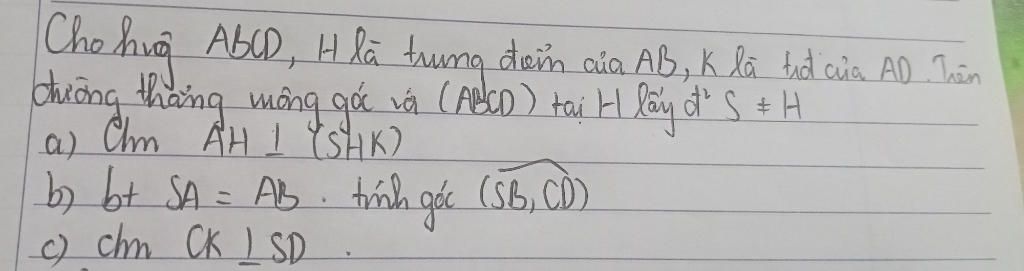 Cho hvg ABCD, H là trung điểm của AB, K là tđ của AD. Trên
đường thẳng vuông góc với (ABCD) tại H lấy đ² S ≠ H
a) Chm AH ⊥ (SHK)
b) bt SA = AB. tính góc (SB, CD)
c) chm CK ⊥ SD.